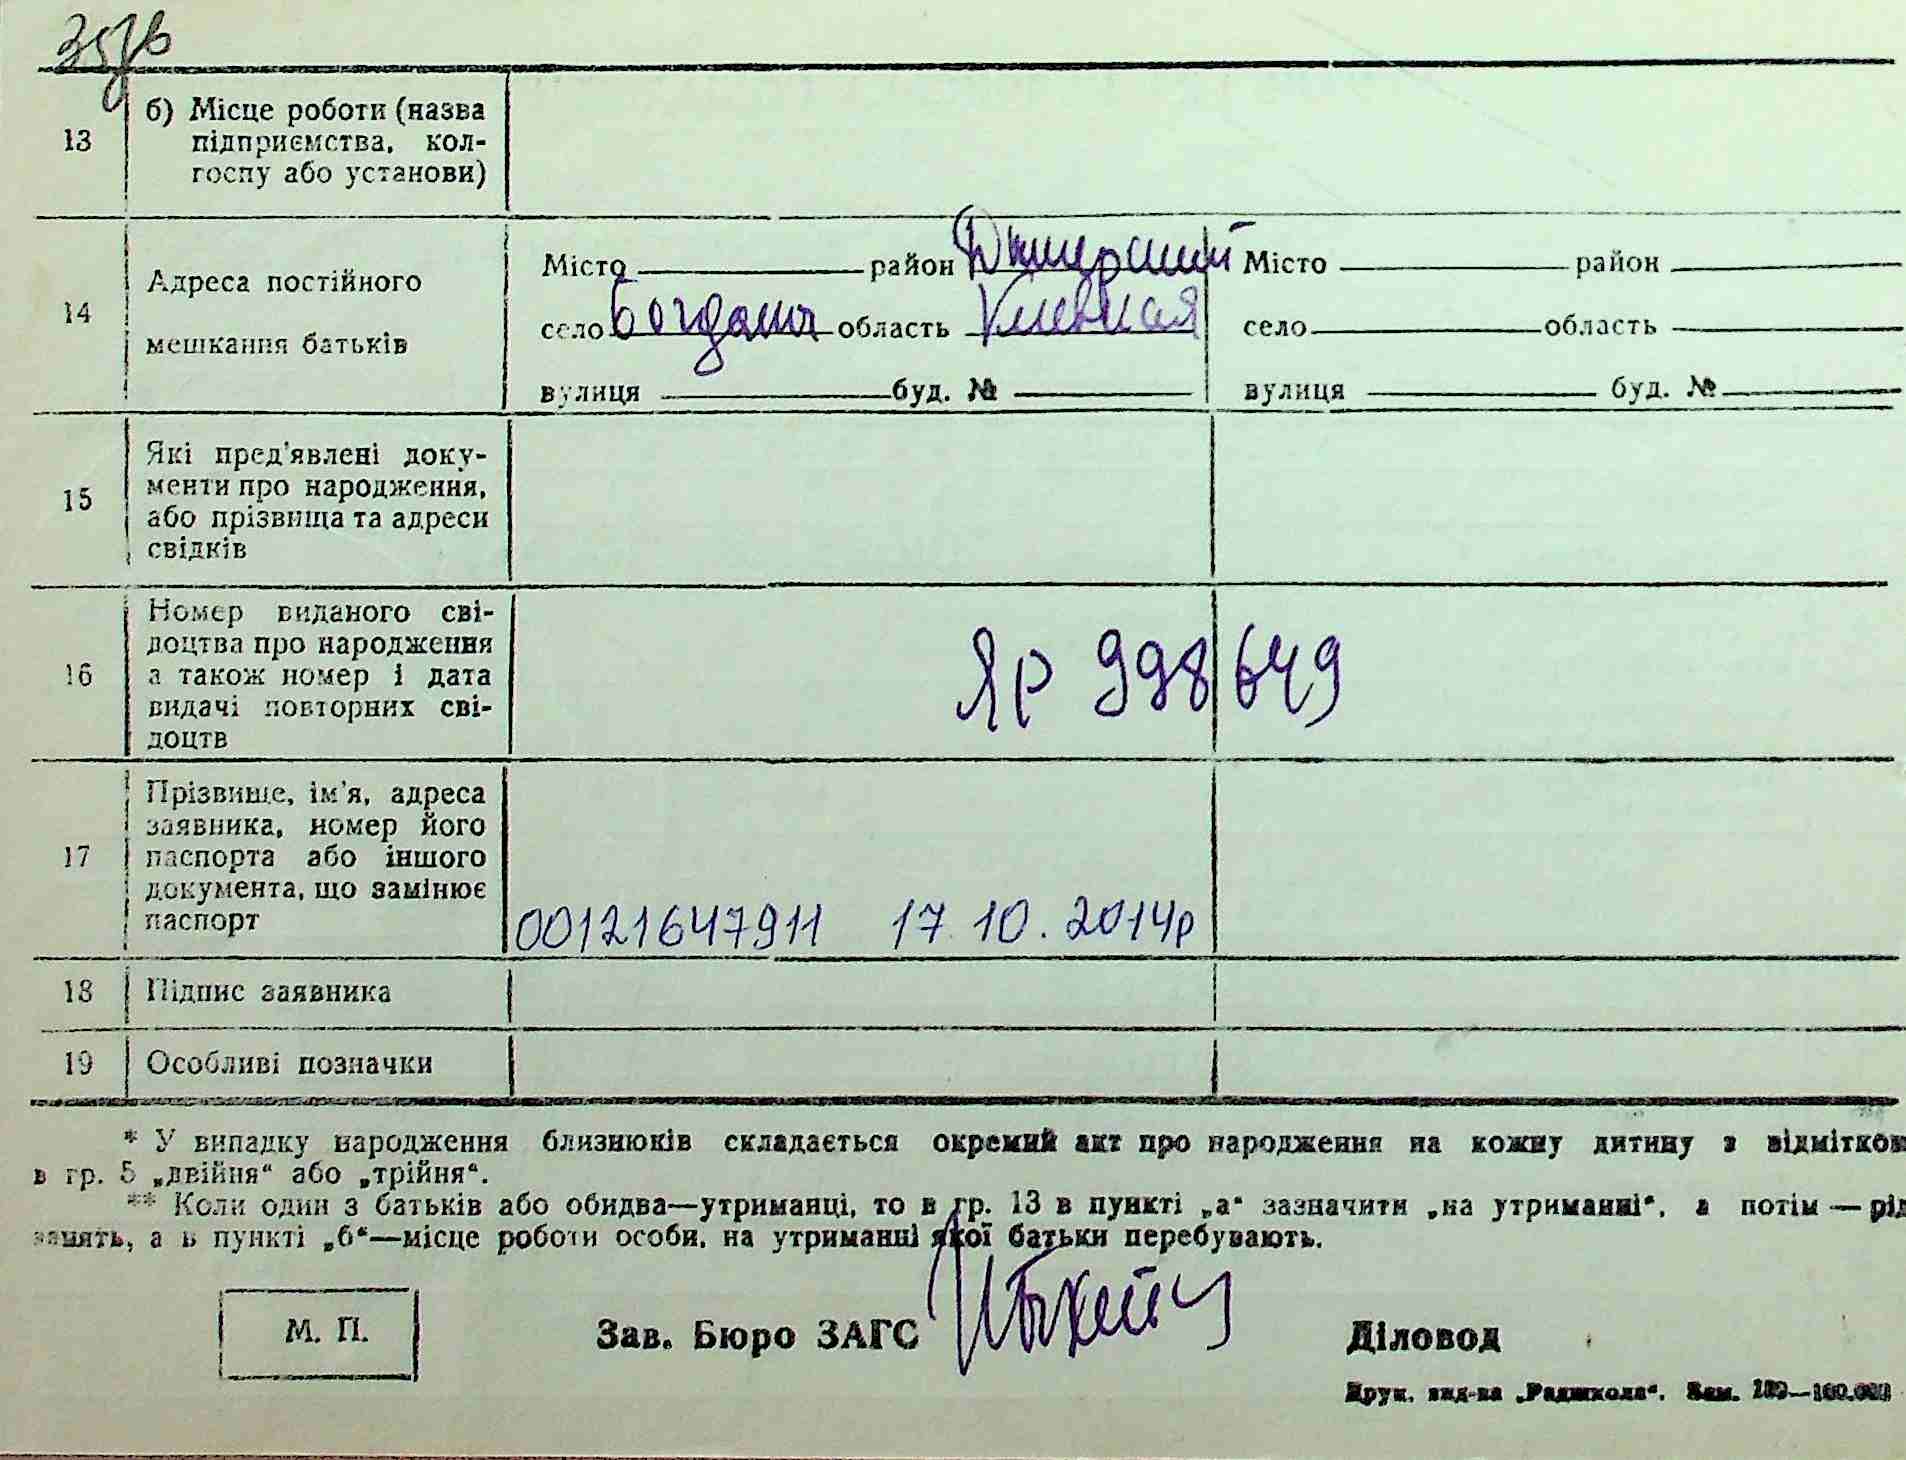 13
б) Місце роботи (назва
підприємства, кол-
госпу або установи)
14
Адреса постійного
мешкання батьків
Місто район Димерский
село Богдани область Киевская
вулиця буд. №
Місто район
село область
вулиця буд. №
15
Які пред'явлені доку-
менти про народження,
або прізвища та адреси
свідків
16
Номер виданого сві-
доцтва про народження
а також номер і дата
видачі повторних сві-
доцтв
ЯР 998649
17
Прізвище, ім'я, адреса
заявника, номер його
паспорта або іншого
документа, що замінює
паспорт
00121647911 17.10.2014р
18
Підпис заявника
19
Особливі позначки
* У випадку народження близнюків складається окремий акт про народження на кожну дитину з відміткою
в гр. 5 „двійня“ або „трійня“.
** Коли один з батьків або обидва—утриманці, то в гр. 13 в пункті „а“ зазначити „на утриманні“, а потім — рід
занять, а в пункті „б“—місце роботи особи, на утриманні якої батьки перебувають.
М. П.
Зав. Бюро ЗАГС
Діловод
Друк. вид-ва „Радшкола“. Зам.